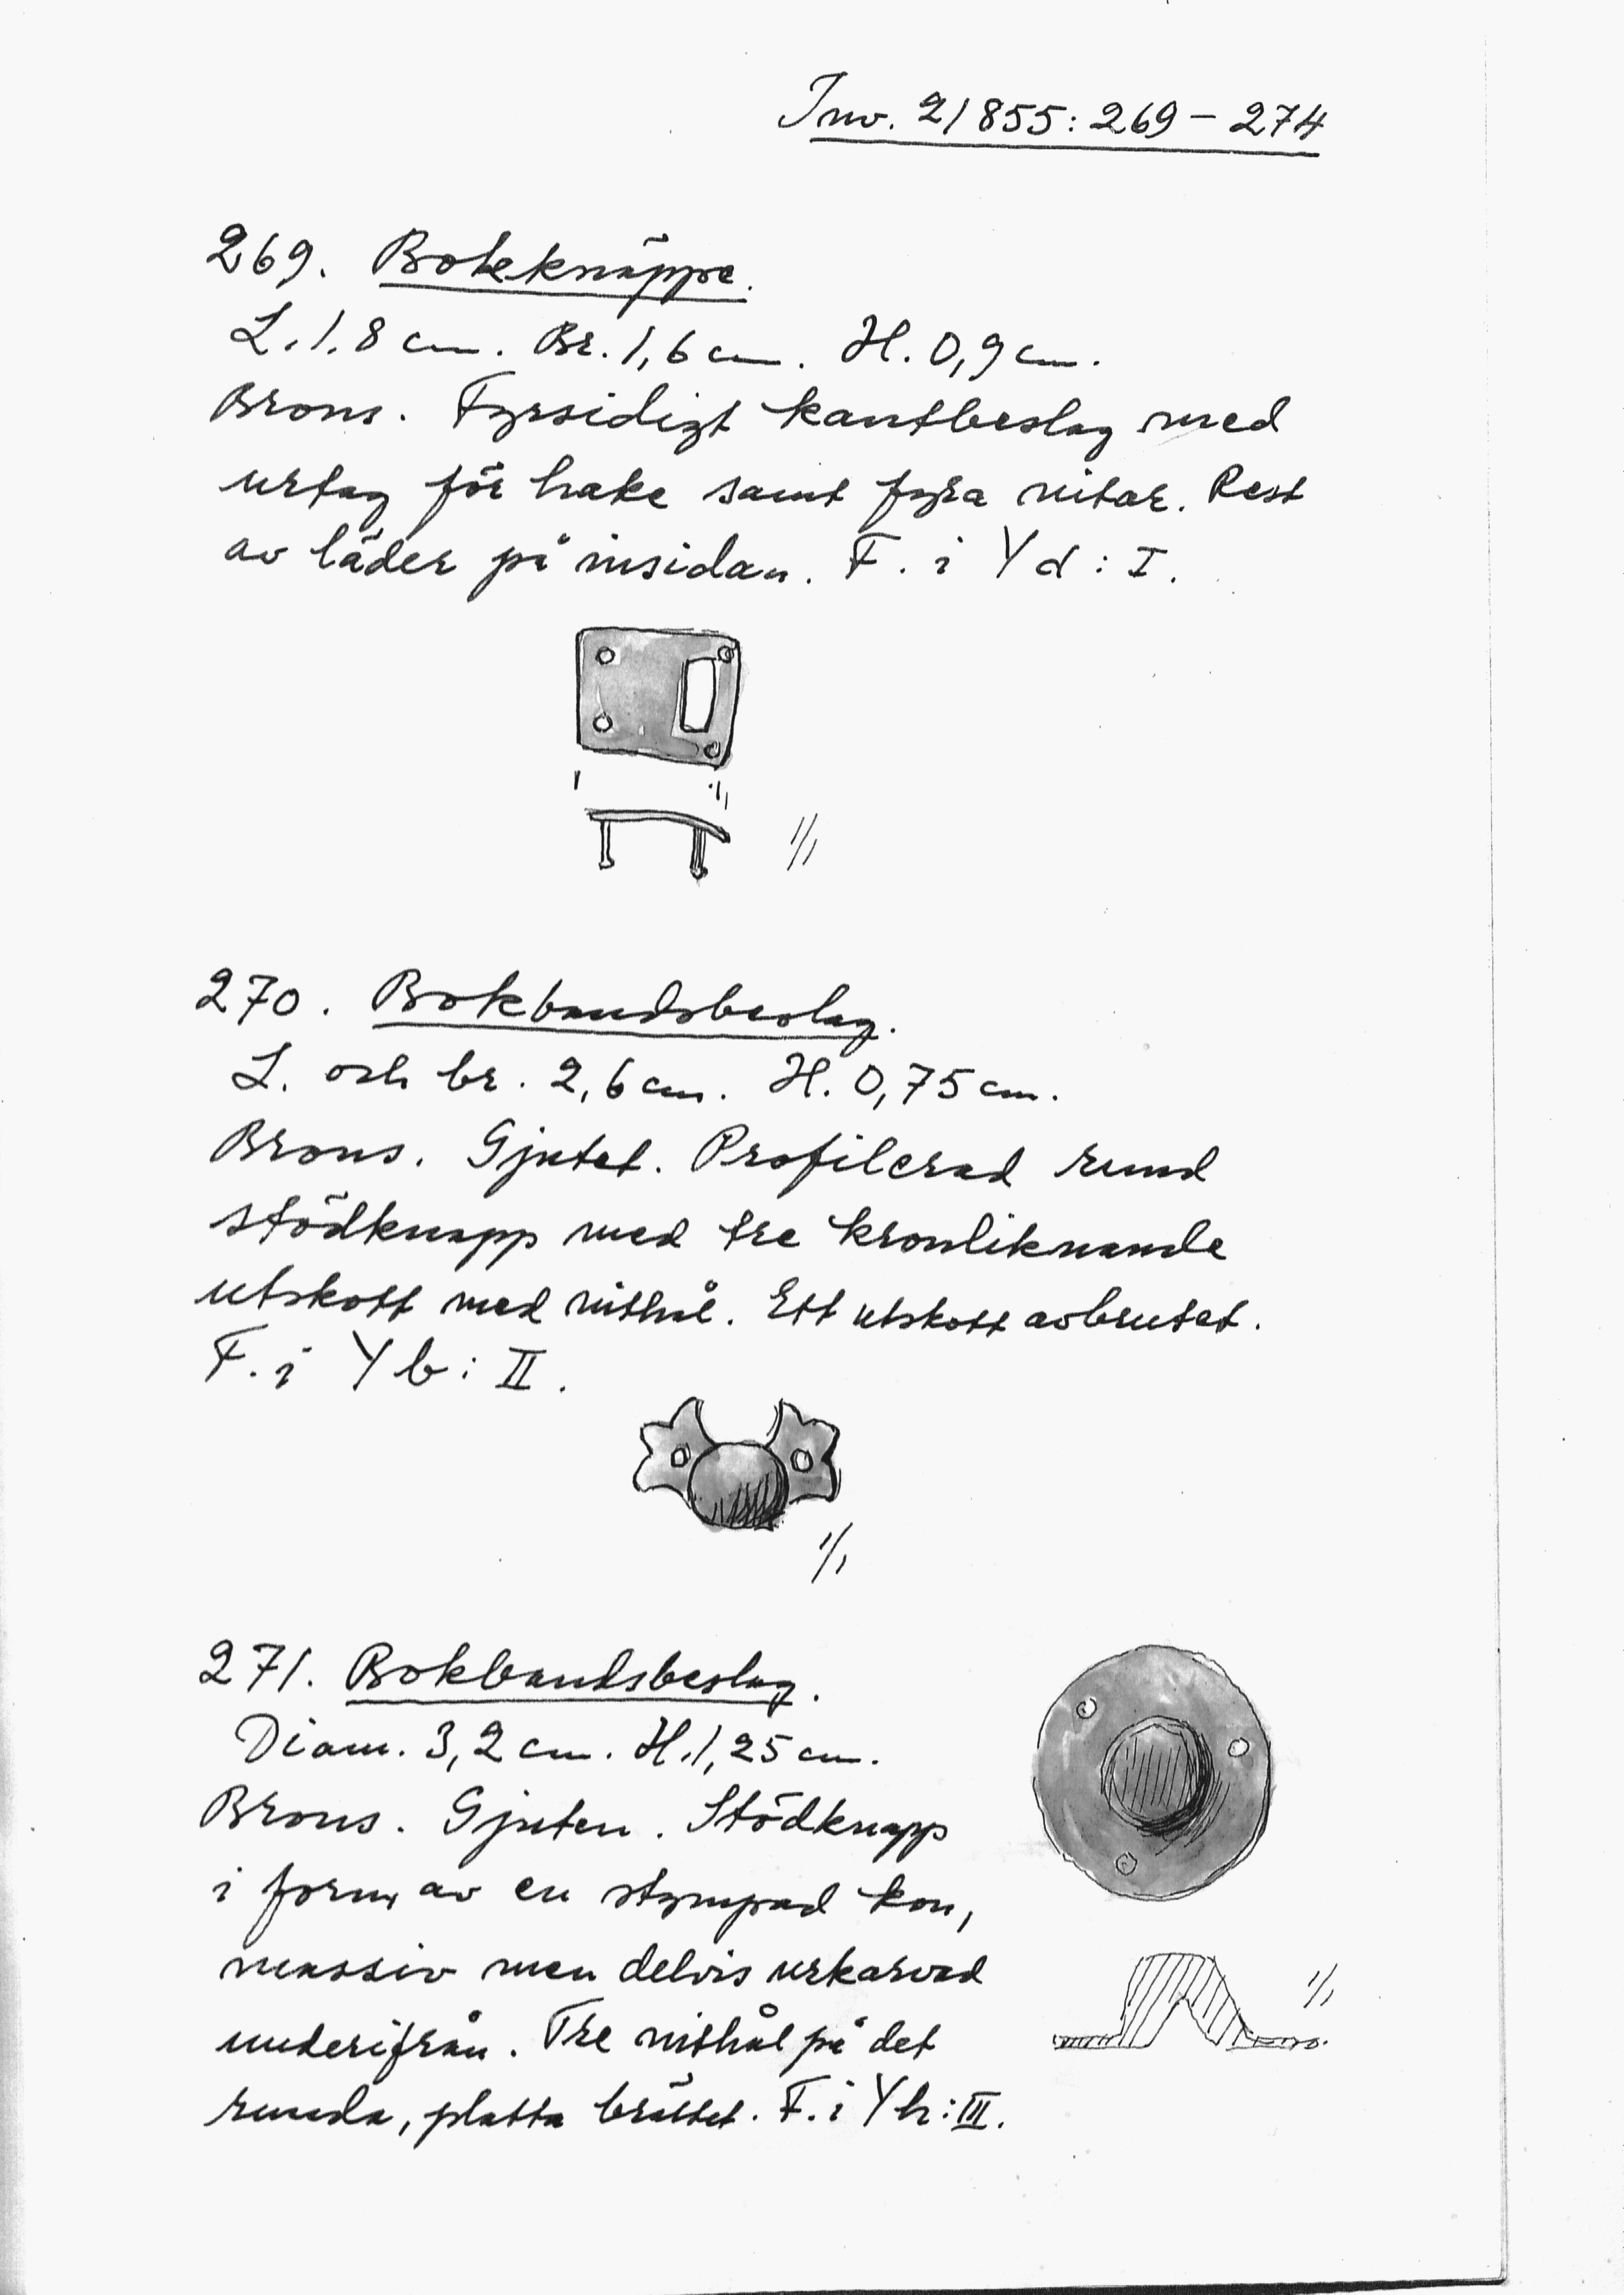 Inv. 21855: 269 – 274
269. Bokknäppe.
L. 1,8 cm. Br. 1,6 cm. H. 0,9 cm.
Brons. Fyrsidigt kantbeslag med
urtag för hake samt fyra nitar. Rest
av läder på insidan. F. i Yd: I.
1/1
270. Bokbandsbeslag.
L. och br. 2,6 cm. H. 0,75 cm.
Brons. Gjutet. Profilerad rund
stödknapp med tre kronliknande
utskott med nithål. Ett utskott avbrutet.
F. i Yb: II.
1/1
271. Bokbandsbeslag.
Diam. 3,2 cm. H. 1,25 cm.
Brons. Gjuten. Stödknapp
i form av en stympad kon,
massiv men delvis urkarvad
underifrån. Tre nithål på det
runda, platta brättet. F. i Yh: III.
1/1